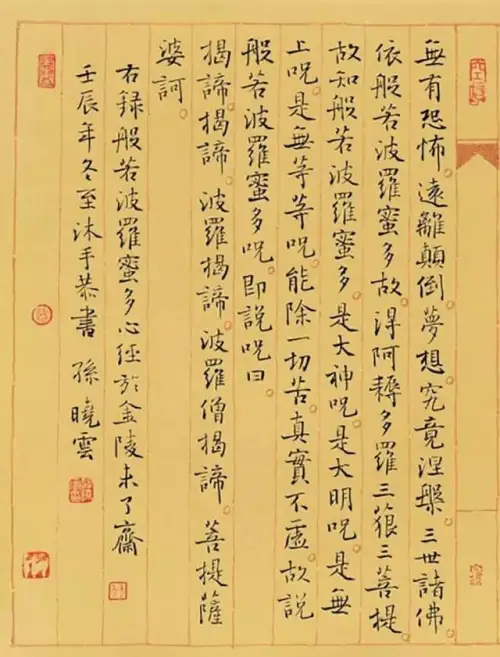 無有恐怖。遠離顛倒夢想。究竟涅槃。三世諸佛
依般若波羅蜜多故。得阿耨多羅三藐三菩提。
故知般若波羅蜜多。是大神呪。是大明呪。是無
上呪。是無等等呪。能除一切苦。真實不虛。故說
般若波羅蜜多呪。即說呪曰。
揭諦。揭諦。波羅揭諦。波羅僧揭諦。菩提薩
婆訶。
右録般若波羅蜜多心經於金陵未了齋
壬辰年冬至沐手恭書 孫曉雲